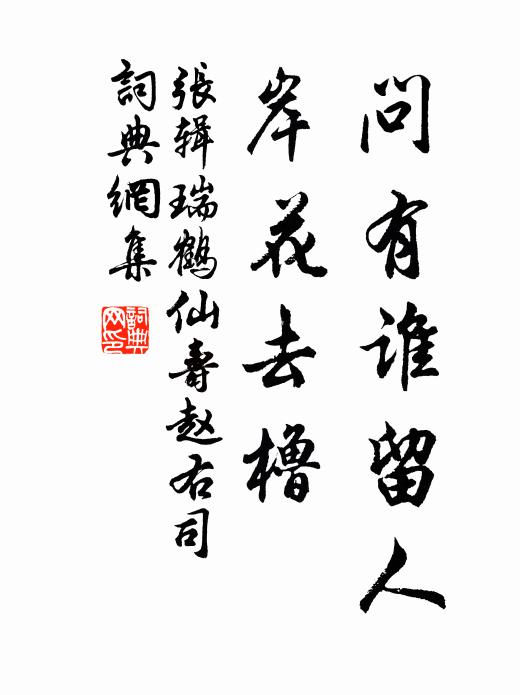 問有誰留人
岸花去櫓
張輯瑞鶴仙壽赵右司
詞典網集
詞典网印